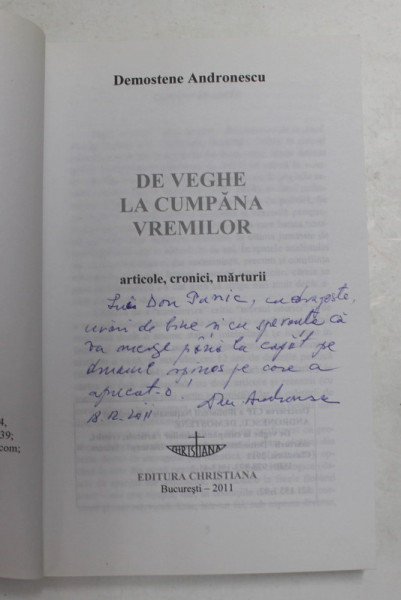 Demostene Andronescu
DE VEGHE
LA CUMPĂNA
VREMILOR
articole, cronici, mărturii
Lui Don Punic, cu dragoste,
urări de bine și cu speranța că
va merge până la capăt pe
drumul spinos pe care a
apucat-o!
EDITURA CHRISTIANA
București – 2011
CHRISTIANA
4,
39;
com;